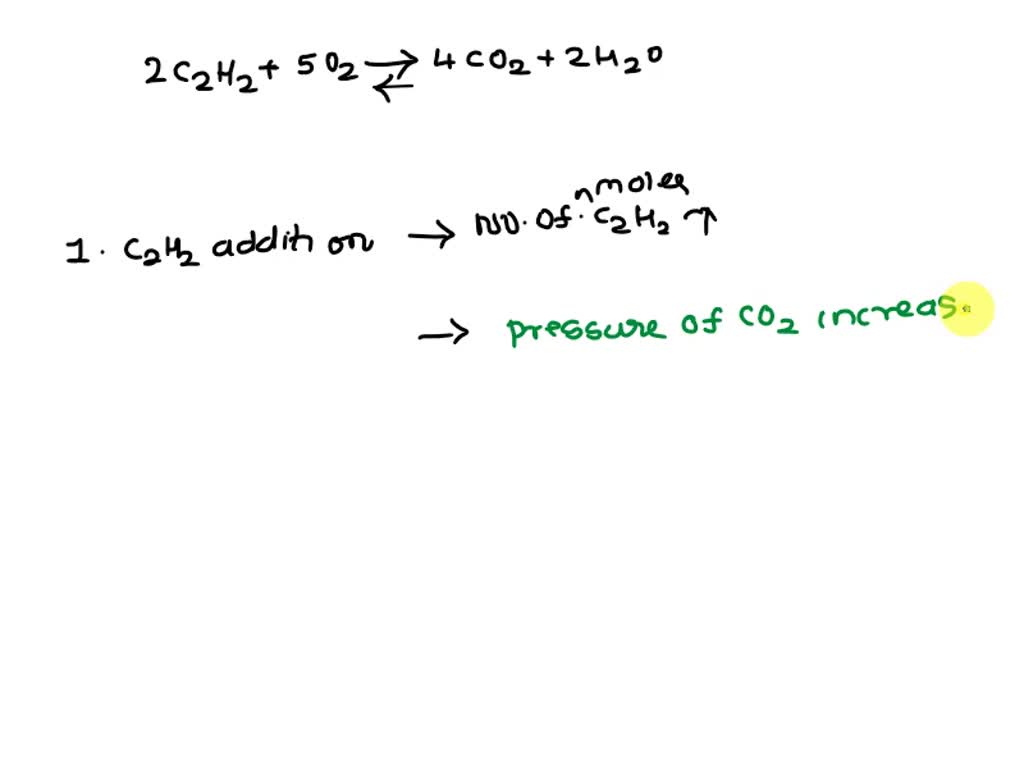 2C₂H₂ + 5O₂ ⇌ 4CO₂ + 2H₂O
moles
1. C₂H₂ addition → No. of. C₂H₂ ↑
→ pressure of CO₂ increas